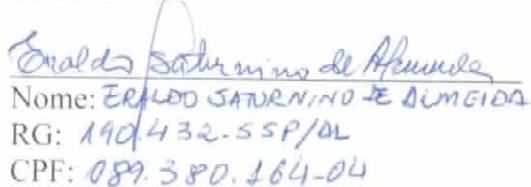 Eraldo Saturnino de Almeida
Nome: ERALDO SATURNINO DE ALMEIDA
RG: 190.432-SSP/AL
CPF: 089.380.164-04